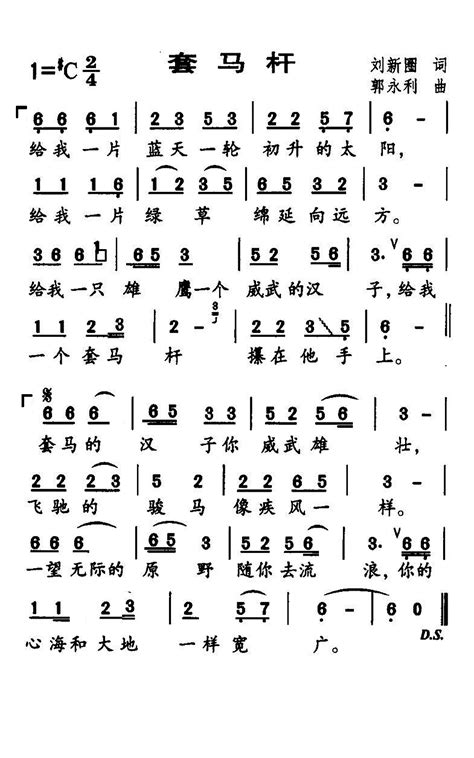 套马杆
1=♯C 2/4
刘新圈 词
郭永利 曲
6 6 6 1 | 2 3 5 3 | 2 2 5 7 | 6 - |
给我一片 蓝天一轮 初升的太 阳,
1 1 1 6 | 1 2 3 5 | 2 2 5 6 | 3 - |
给我一片绿 草 绵延向远 方。
3 6 6 1 | 6 5 3 | 5 2 5 6 | 3. V 6 6 |
给我一只雄 鹰一个 威武的汉 子,给我
1 1 2 3 | 2 - 3 | 2 2 3 5 | 6 - ‖
一个套马 杆 攥在他手 上。
𝄋
6 6 6 | 6 5 3 3 | 5 2 5 6 | 3 - |
套马的 汉 子你 威武雄 壮,
2 2 2 3 | 5 2 | 5 2 5 6 | 3 - |
飞驰的 骏马 像疾风一 样。
6 6 6 | 6 5 3 | 2 2 5 6 | 3. V 6 6 |
一望无际的 原 野 随你去流 浪,你的
1 1 2 3 | 2 5 7 | 6 - | 6 0 ‖
心海和大地 一样宽 广。
D.S.